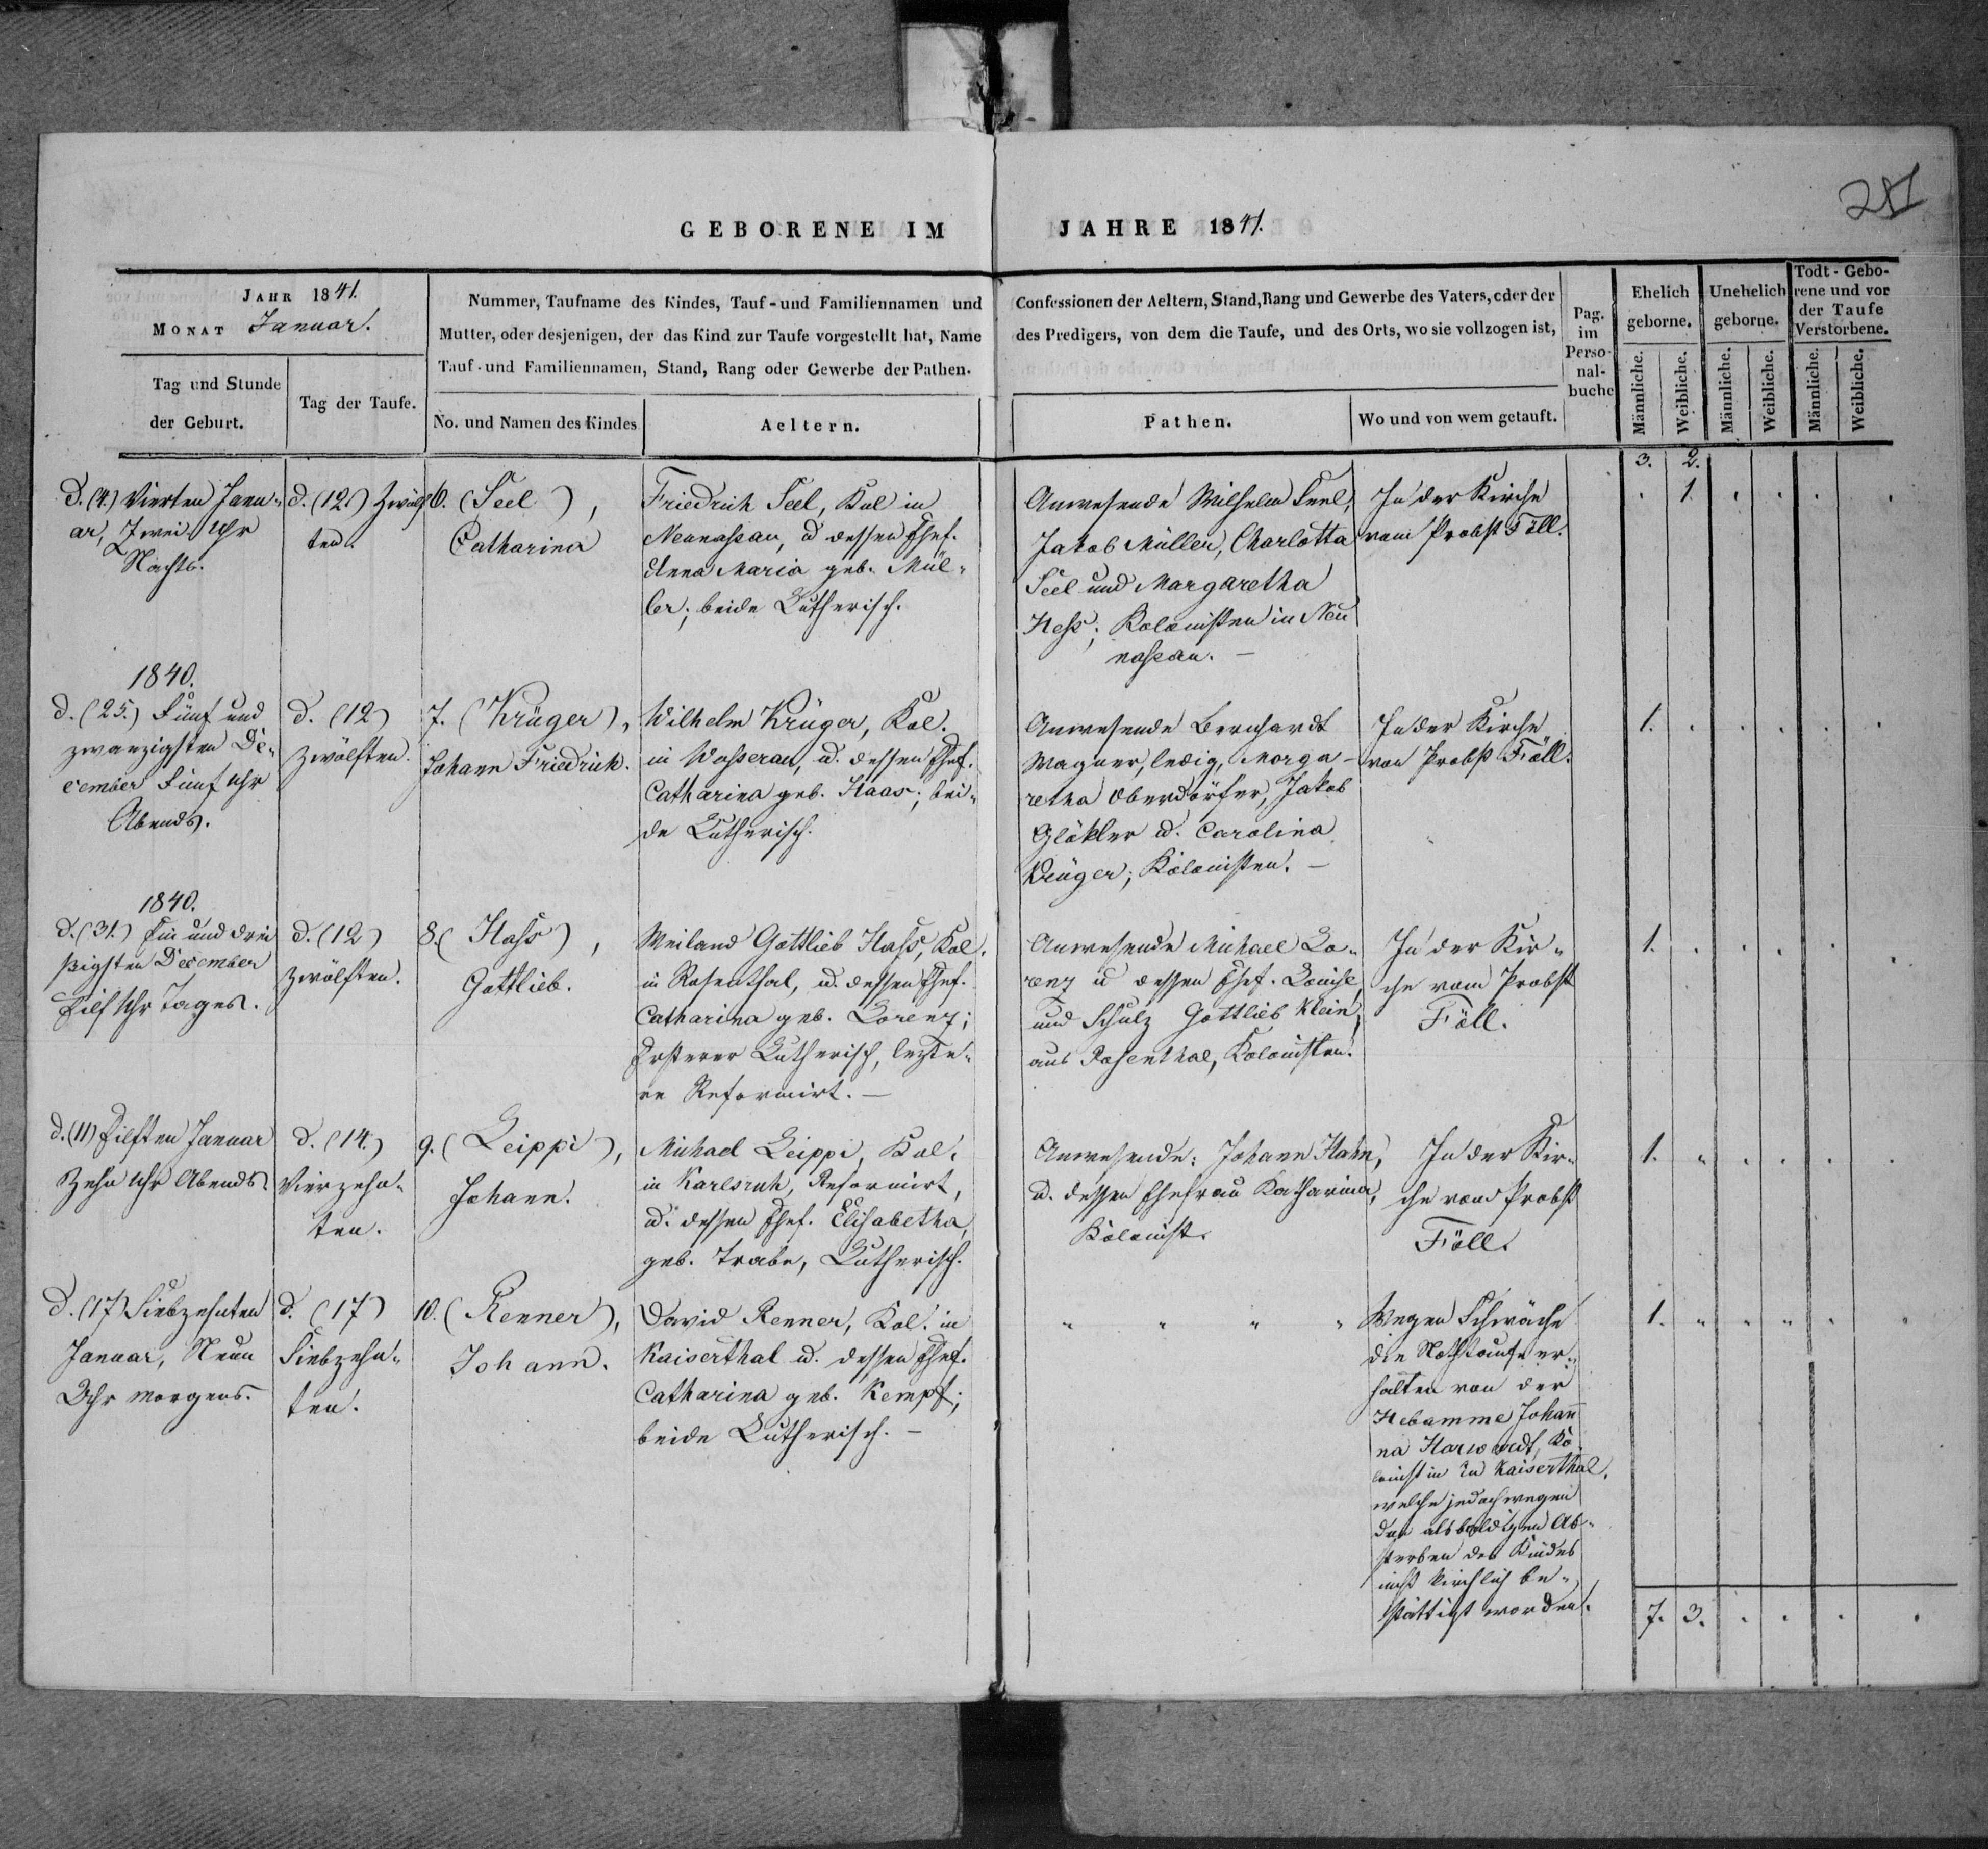 281
GEBORENE IM JAHRE 1841.
JAHR 1841.
MONAT Januar.
Tag und Stunde
der Geburt.
Tag der Taufe.
Nummer, Taufname des Kindes, Tauf- und Familiennamen und
Mutter, oder desjenigen, der das Kind zur Taufe vorgestellt hat, Name
Tauf- und Familiennamen, Stand, Rang oder Gewerbe der Pathen.
No. und Namen des Kindes
Aeltern.
Confessionen der Aeltern, Stand, Rang und Gewerbe des Vaters, oder der
des Predigers, von dem die Taufe, und des Orts, wo sie vollzogen ist,
Pathen.
Wo und von wem getauft.
Pag.
im
Perso-
nal-
buche
Ehelich
geborne.
Unehelich
geborne.
Todt-Gebo-
rene und vor
der Taufe
Verstorbene.
Männliche.
Weibliche.
Männliche.
Weibliche.
Männliche.
Weibliche.
3. 2.
d. (4.) Vierten Janu-
ar, Zwei Uhr
Nachts.
d. (12.) Zwölf
ten.
6. (Seel),
Catharina
Friedrich Seel, Kol in
Neunassau, u dessen Ehef.
Anna Maria geb. Mül-
ler; beide Lutherisch.
Anwesende Wilhelm Seel,
Jakob Müller, Charlotta
Seel und Margaretha
Hess; Kolonisten in Neu
nassau. —
In der Kirche
vom Probst Föll.
1.
1840.
d. (25.) Fünf und
zwanzigsten De-
cember Fünf Uhr
Abends.
d. (12)
zwölften.
7. (Krüger),
Johann Friedrich.
Wilhelm Krüger, Kol.
in Wasserau, u. dessen Ehef.
Catharina geb. Haas; bei-
de Lutherisch.
Anwesende Bernhardt
Wagner, ledig, Marga-
retha Oberdörfer, Jakob
Glökler u. Carolina
Krüger; Kolonisten. —
In der Kirche
von Probst Föll.
1.
1840.
d. (31.) Ein und drei
ßigsten December
Eilf Uhr Tages.
d. (12)
zwölften.
8. (Hass),
Gottlieb.
Weiland Gottlieb Hass, Kol.
in Rosenthal, u. dessen Ehef.
Catharina geb. Lorenz;
Ersterer Lutherisch, lezte-
re Reformirt. —
Anwesende Michael Lo-
renz u dessen Ehef. Louise,
und Schulz Gottlieb Klein,
aus Rosenthal, Kolonisten.
In der Kir-
che vom Probst
Föll.
1.
d. (11) Eilften Januar
Zehn Uhr Abends.
d. (14.)
Vierzehn-
ten.
9. (Leippi),
Johann.
Michael Leippi, Kol.
in Karlsruh, Reformirt,
u. dessen Ehef. Elisabetha,
geb. Trabe, Lutherisch.
Anwesende: Johann Hahn,
u. dessen Ehefrau Katharina,
Kolonist.
In der Kir-
che vom Probst
Föll.
1.
d. (17) Siebzehnten
Januar, Neun
Uhr morgens.
d. (17)
Siebzehn-
ten.
10. (Renner),
Johann.
David Renner, Kol. in
Kaiserthal u. dessen Ehef.
Catharina geb. Kempf;
beide Lutherisch. —
" " " "
Wegen Schwäche
die Nothtaufe er-
halten von der
Hebamme Johan
na Harwardt, Ko-
lonistin in Kaiserthal,
welche jedoch wegen
des alsbaldigen Ab-
sterben des Kindes
nicht kirchlich be-
stättigt worden.
1.
7. 3.